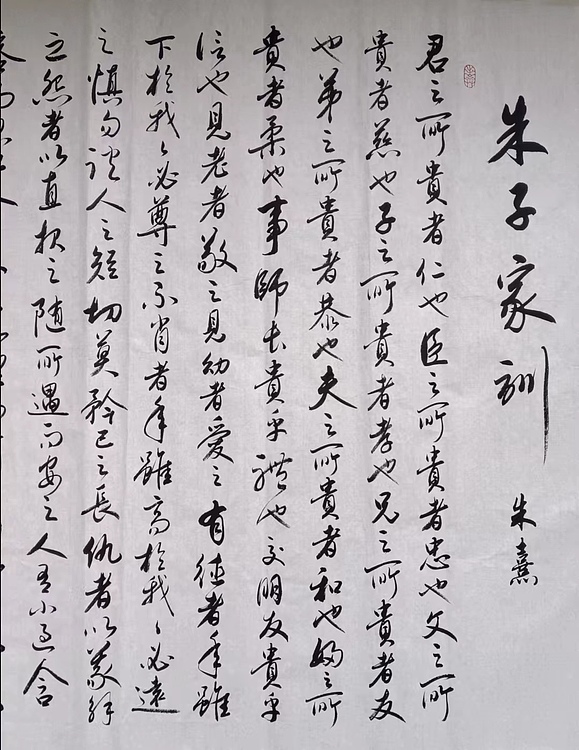 朱子家訓
朱熹
君之所貴者仁也臣之所貴者忠也父之所
貴者慈也子之所貴者孝也兄之所貴者友
也弟之所貴者恭也夫之所貴者和也婦之所
貴者柔也事師長貴乎禮也交朋友貴乎
信也見老者敬之見幼者愛之有德者年雖
下於我々必尊之不肖者年雖高於我々必遠
之慎勿談人之短切莫矜己之長仇者以義解
之怨者以直报之随所遇而安之人有小過含